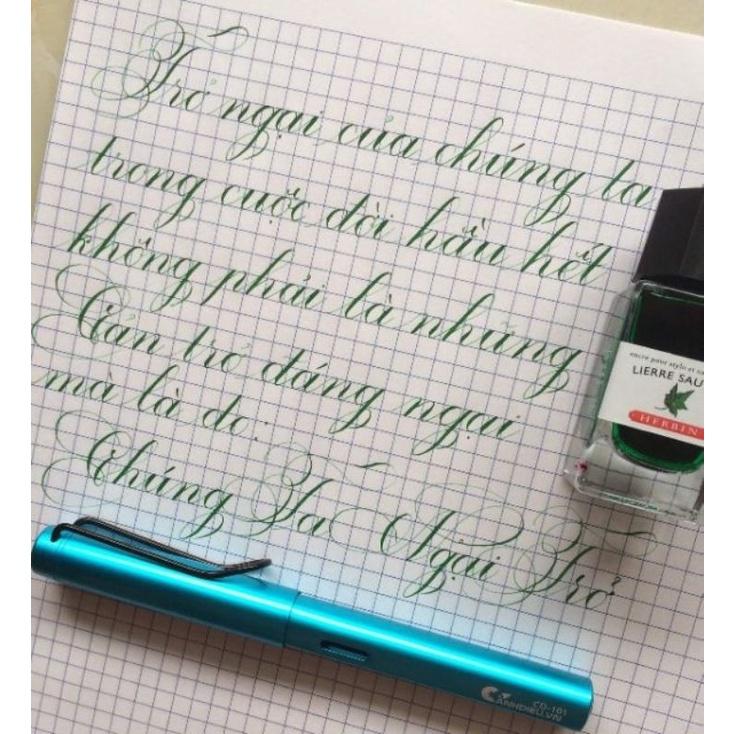 Trở ngại của chúng ta
trong cuộc đời hầu hết
không phải là những
Cản trở đáng ngại
mà là do.
Chúng Ta Ngại Trở
encre pour stylo et
LIERRE SAU
HERBIN
CD-101
CANHDIEU.VN